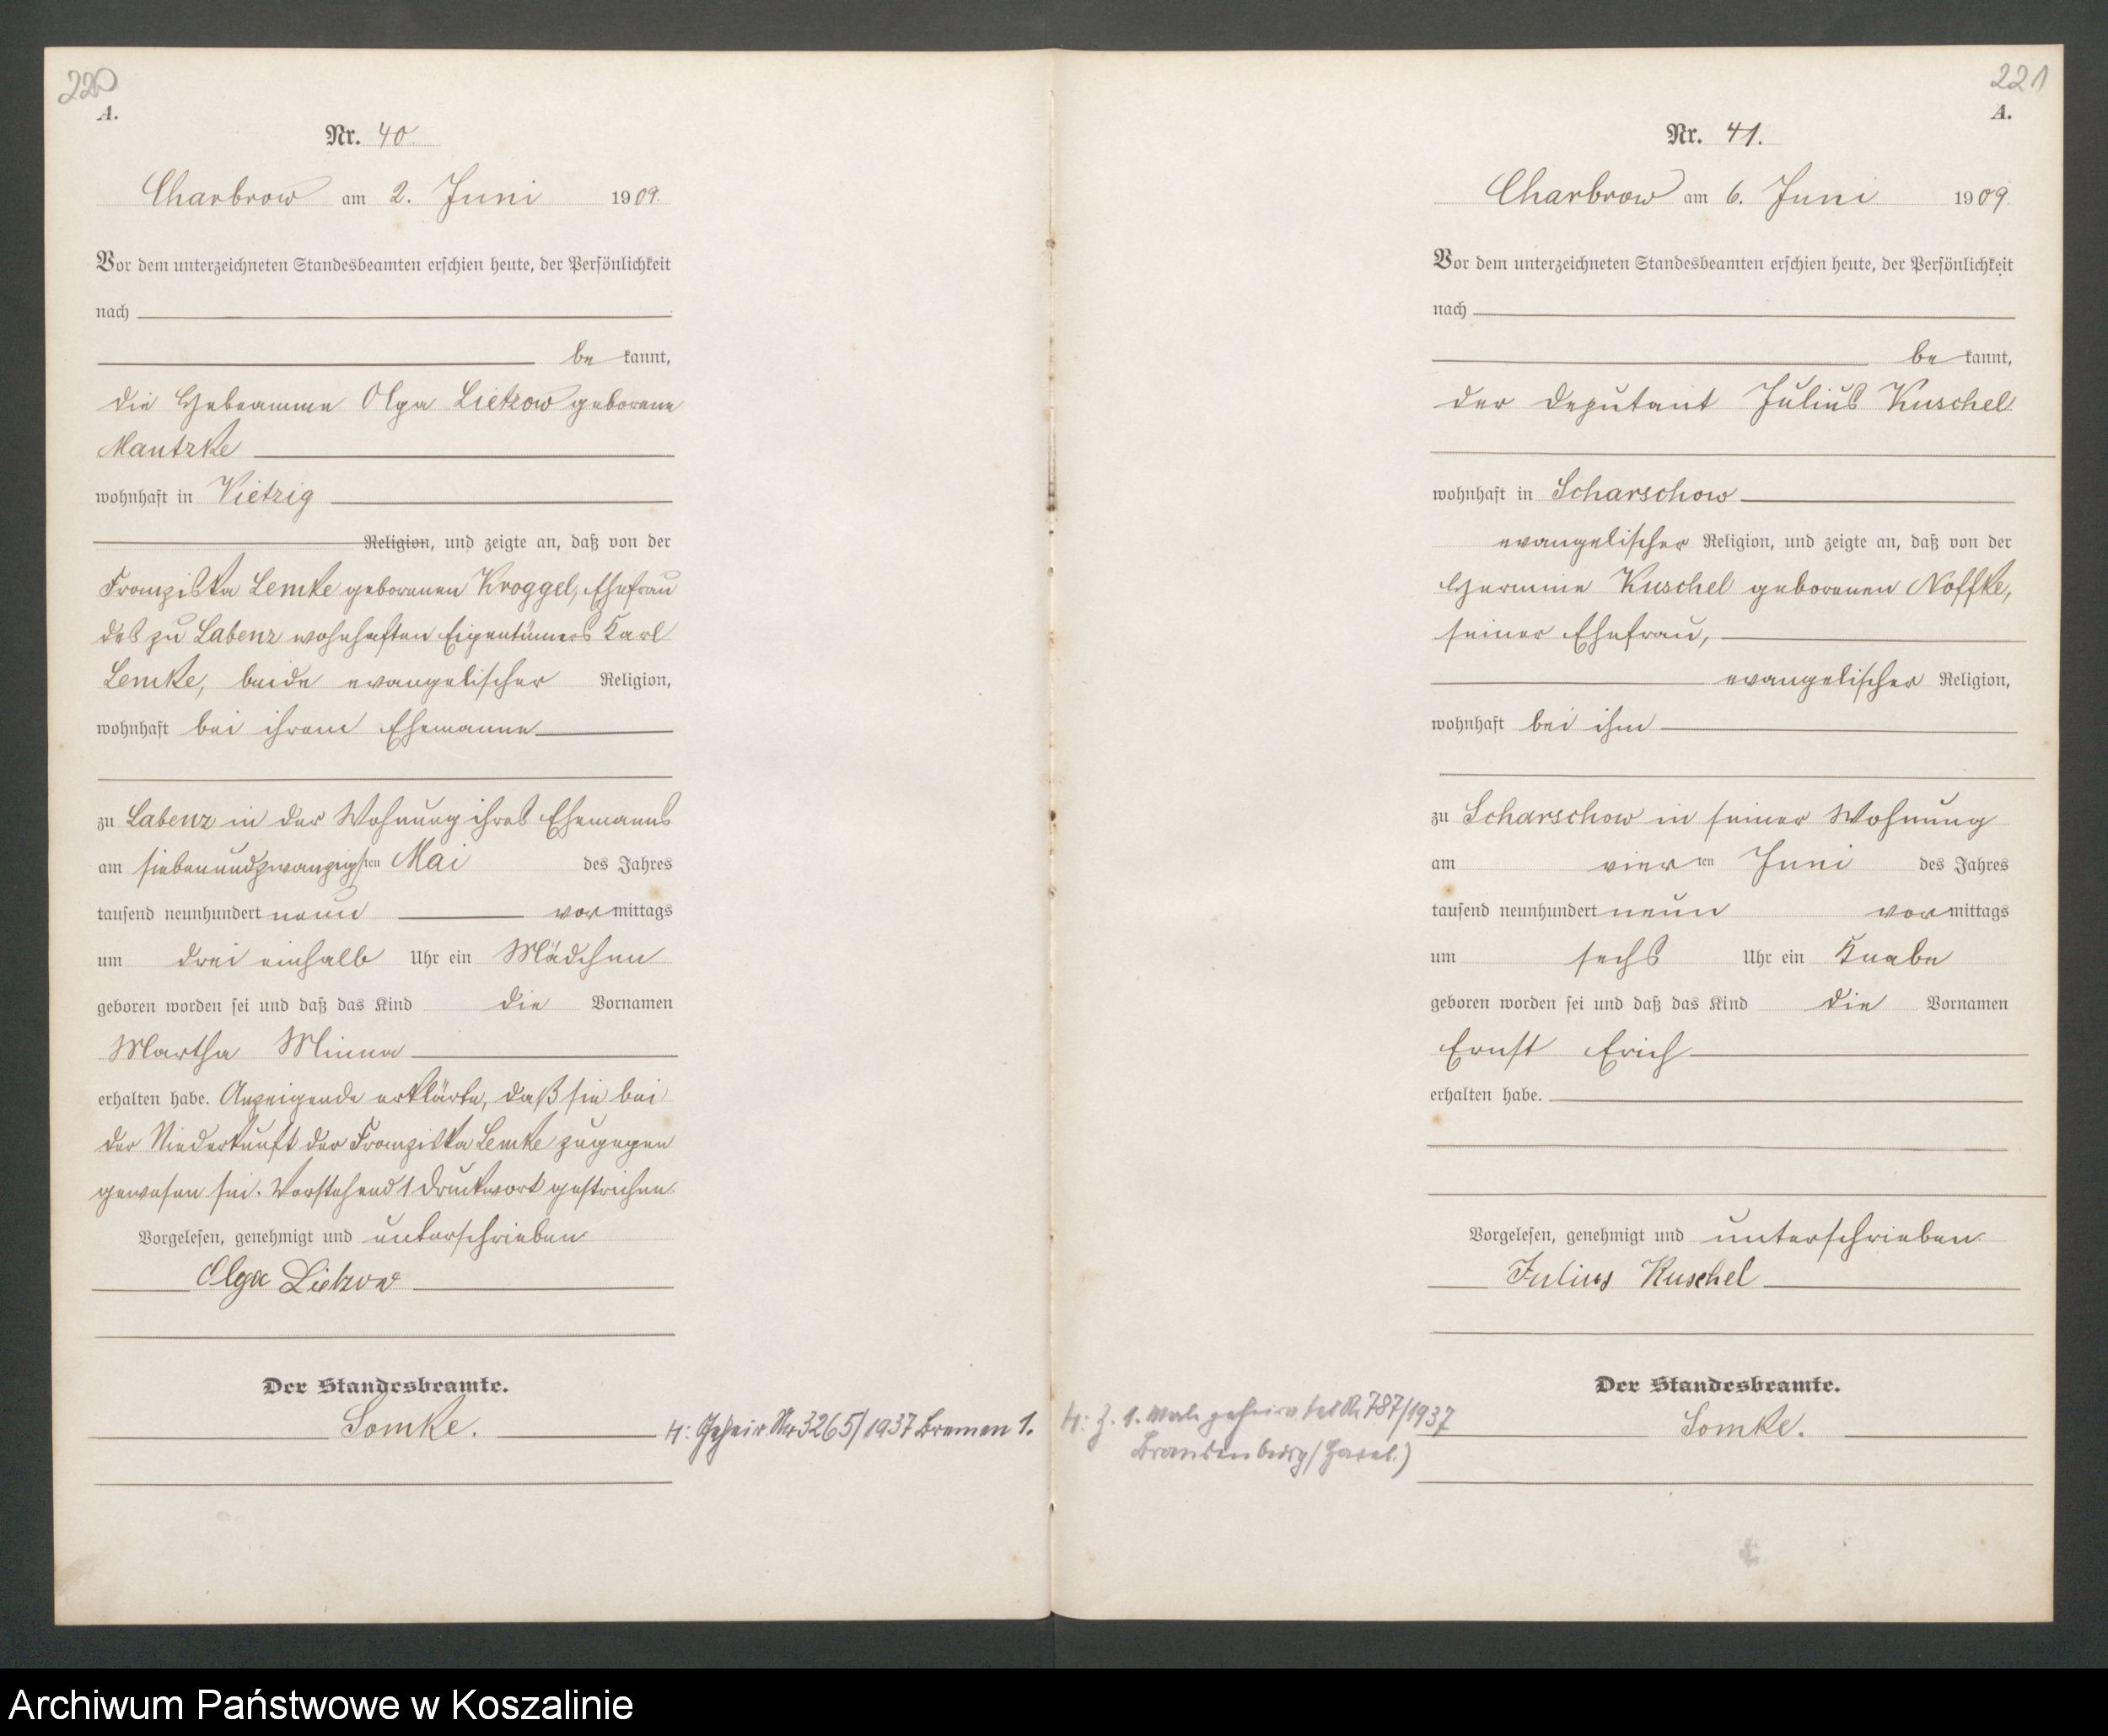 220
A.
Nr. 40.
Charbrow am 2. Juni 1909.
Vor dem unterzeichneten Standesbeamten erschien heute, der Persönlichkeit
nach
be kannt,
die Hebeamme Olga Lietzow geborene
Mantzke
wohnhaft in Vietzig
Religion, und zeigte an, daß von der
Franziska Lemke geborenen Kroggel, Ehefrau
des zu Labenz wohnhaften Eigentümers Karl
Lemke, beide evangelischer Religion,
wohnhaft bei ihrem Ehemanne
zu Labenz in der Wohnung ihres Ehemanns
am siebenundzwanzigsten Mai des Jahres
tausend neunhundert neun vormittags
um drei einhalb Uhr ein Mädchen
geboren worden sei und daß das Kind die Vornamen
Martha Minna
erhalten habe. Anzeigende erklärte, daß sie bei
der Niederkunft der Franziska Lemke zugegen
gewesen sei. Vorstehend 1 Druckwort gestrichen.
Vorgelesen, genehmigt und unterschrieben
Olga Lietzow
Der Standesbeamte.
Lomke.
H: Geheir. Nr 3265/1937 Bremen 1.
221
A.
Nr. 41.
Charbrow am 6. Juni 1909.
Vor dem unterzeichneten Standesbeamten erschien heute, der Persönlichkeit
nach
be kannt,
der Deputant Julius Kuschel
wohnhaft in Scharschow
evangelischer Religion, und zeigte an, daß von der
Hermine Kuschel geborenen Noffke,
seiner Ehefrau,
evangelischer Religion,
wohnhaft bei ihm
zu Scharschow in seiner Wohnung
am vierten Juni des Jahres
tausend neunhundert neun vormittags
um sechs Uhr ein Knabe
geboren worden sei und daß das Kind die Vornamen
Ernst Erich
erhalten habe.
Vorgelesen, genehmigt und unterschrieben.
Julius Kuschel
Der Standesbeamte.
Lomke.
H: z. 1. Male geheiratet 787/1937
Brandenburg (Havel.)
Archiwum Państwowe w Koszalinie